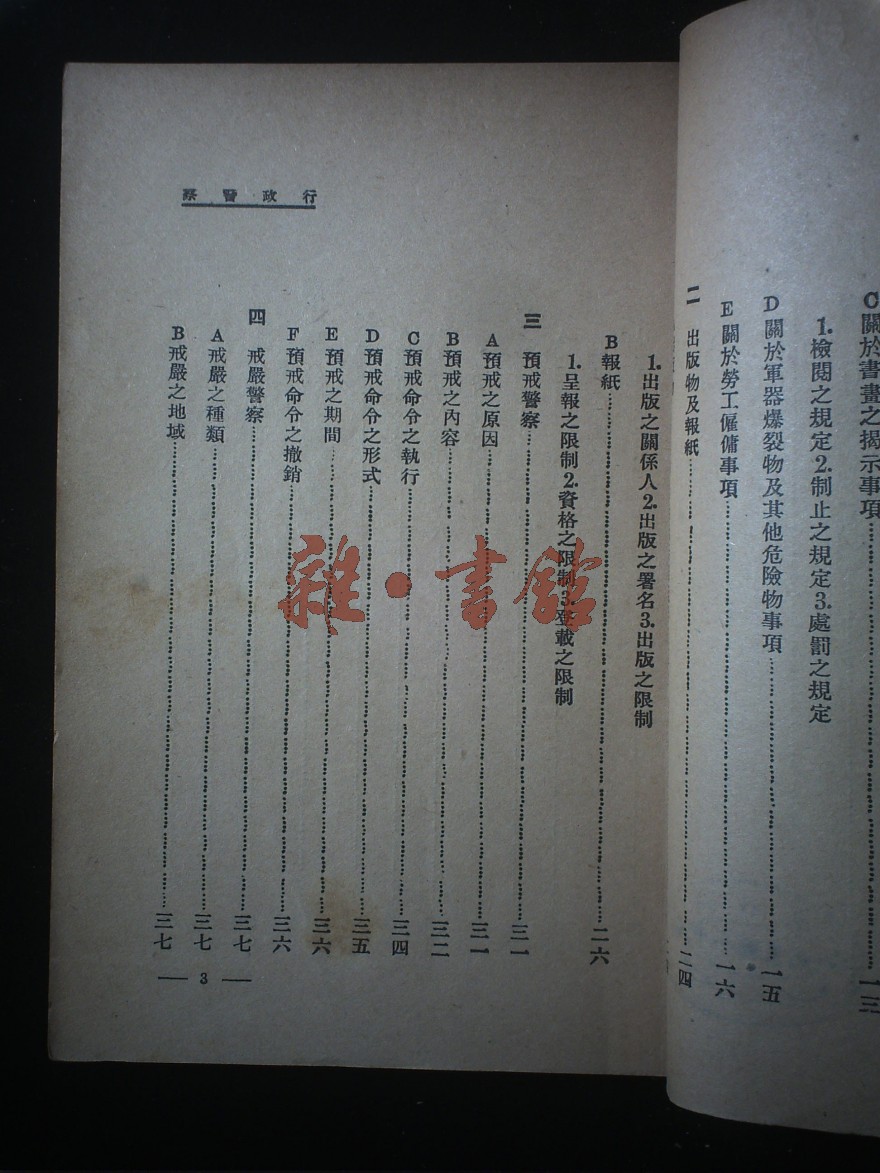 C 關於書畫之揭示事項……一三
1.檢閱之規定2.制止之規定3.處罰之規定
D 關於軍器爆裂物及其他危險物事項……一五
E 關於勞工僱傭事項……一六
二 出版物及報紙……二四
行政警察
1.出版之關係人2.出版之署名3.出版之限制
B 報紙……二六
1.呈報之限制2.資格之限制3.登載之限制
三 預戒警察……三一
A 預戒之原因……三一
B 預戒之內容……三二
C 預戒命令之執行……三四
D 預戒命令之形式……三五
E 預戒之期間……三六
F 預戒命令之撤銷……三六
四 戒嚴警察……三七
A 戒嚴之種類……三七
B 戒嚴之地域……三七
— 3 —
雜·書館